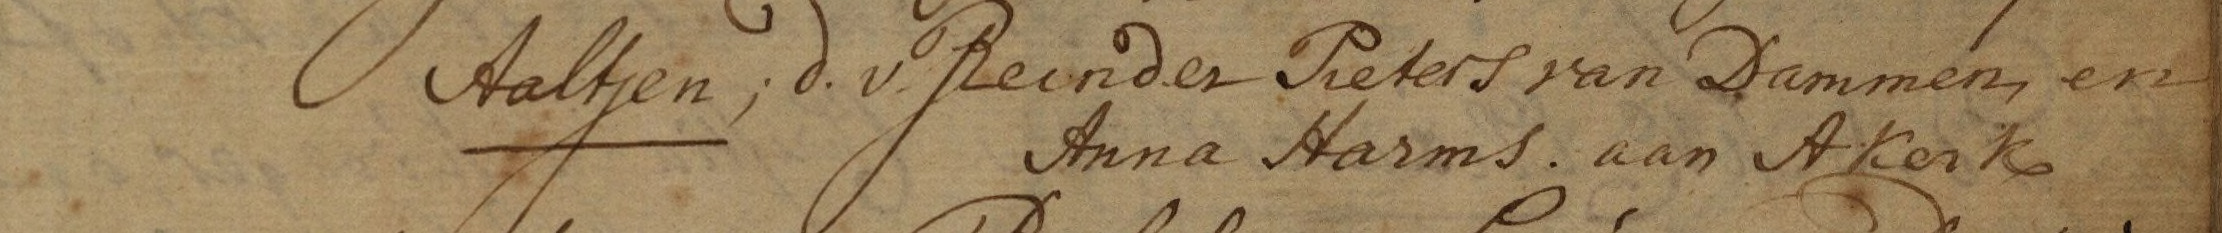 Aaltjen; d. v. Reinder Pieters van Dammen, en
Anna Harms. aan A Kerk